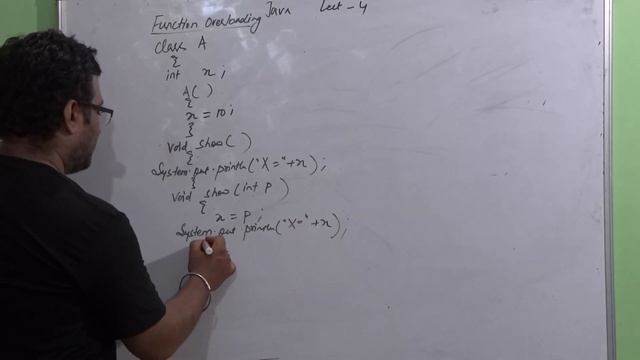 Function Overloading Java Lect - 4
class A
{
int x;
A( )
{
x = 10;
}
void show( )
{
System.out.println("X="+x);
}
void show(int p)
{
x = p;
System.out.println("X="+x);